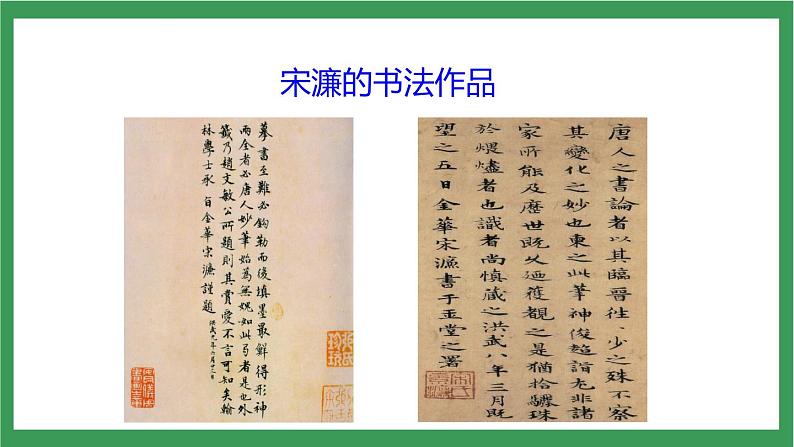 宋濂的书法作品
摹書至難必鈎勒而後填墨最鮮得形神
兩全者必唐人妙筆始為無媿如此弓者是也外
籤乃趙文敏公所題則其賞愛不言可知矣翰
林學士承旨金華宋濂謹題 洪武九年六月十二日
唐人之書論者以其臨晉往々少之殊不察
其變化之妙也東之此筆神俊超詣尤非諸
家所能及歷世既久廼獲觀之是猶拾驪珠
於煨燼者也識者尚慎藏之洪武八年三月既
望之五日金華宋濂書于玉堂之署